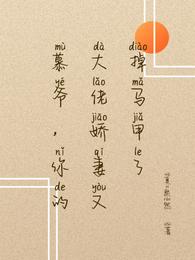 mù yé nǐ de
慕爷，你的
dà lǎo jiāo qī yòu
大佬娇妻又
diào mǎ jiǎ le
掉马甲了
著